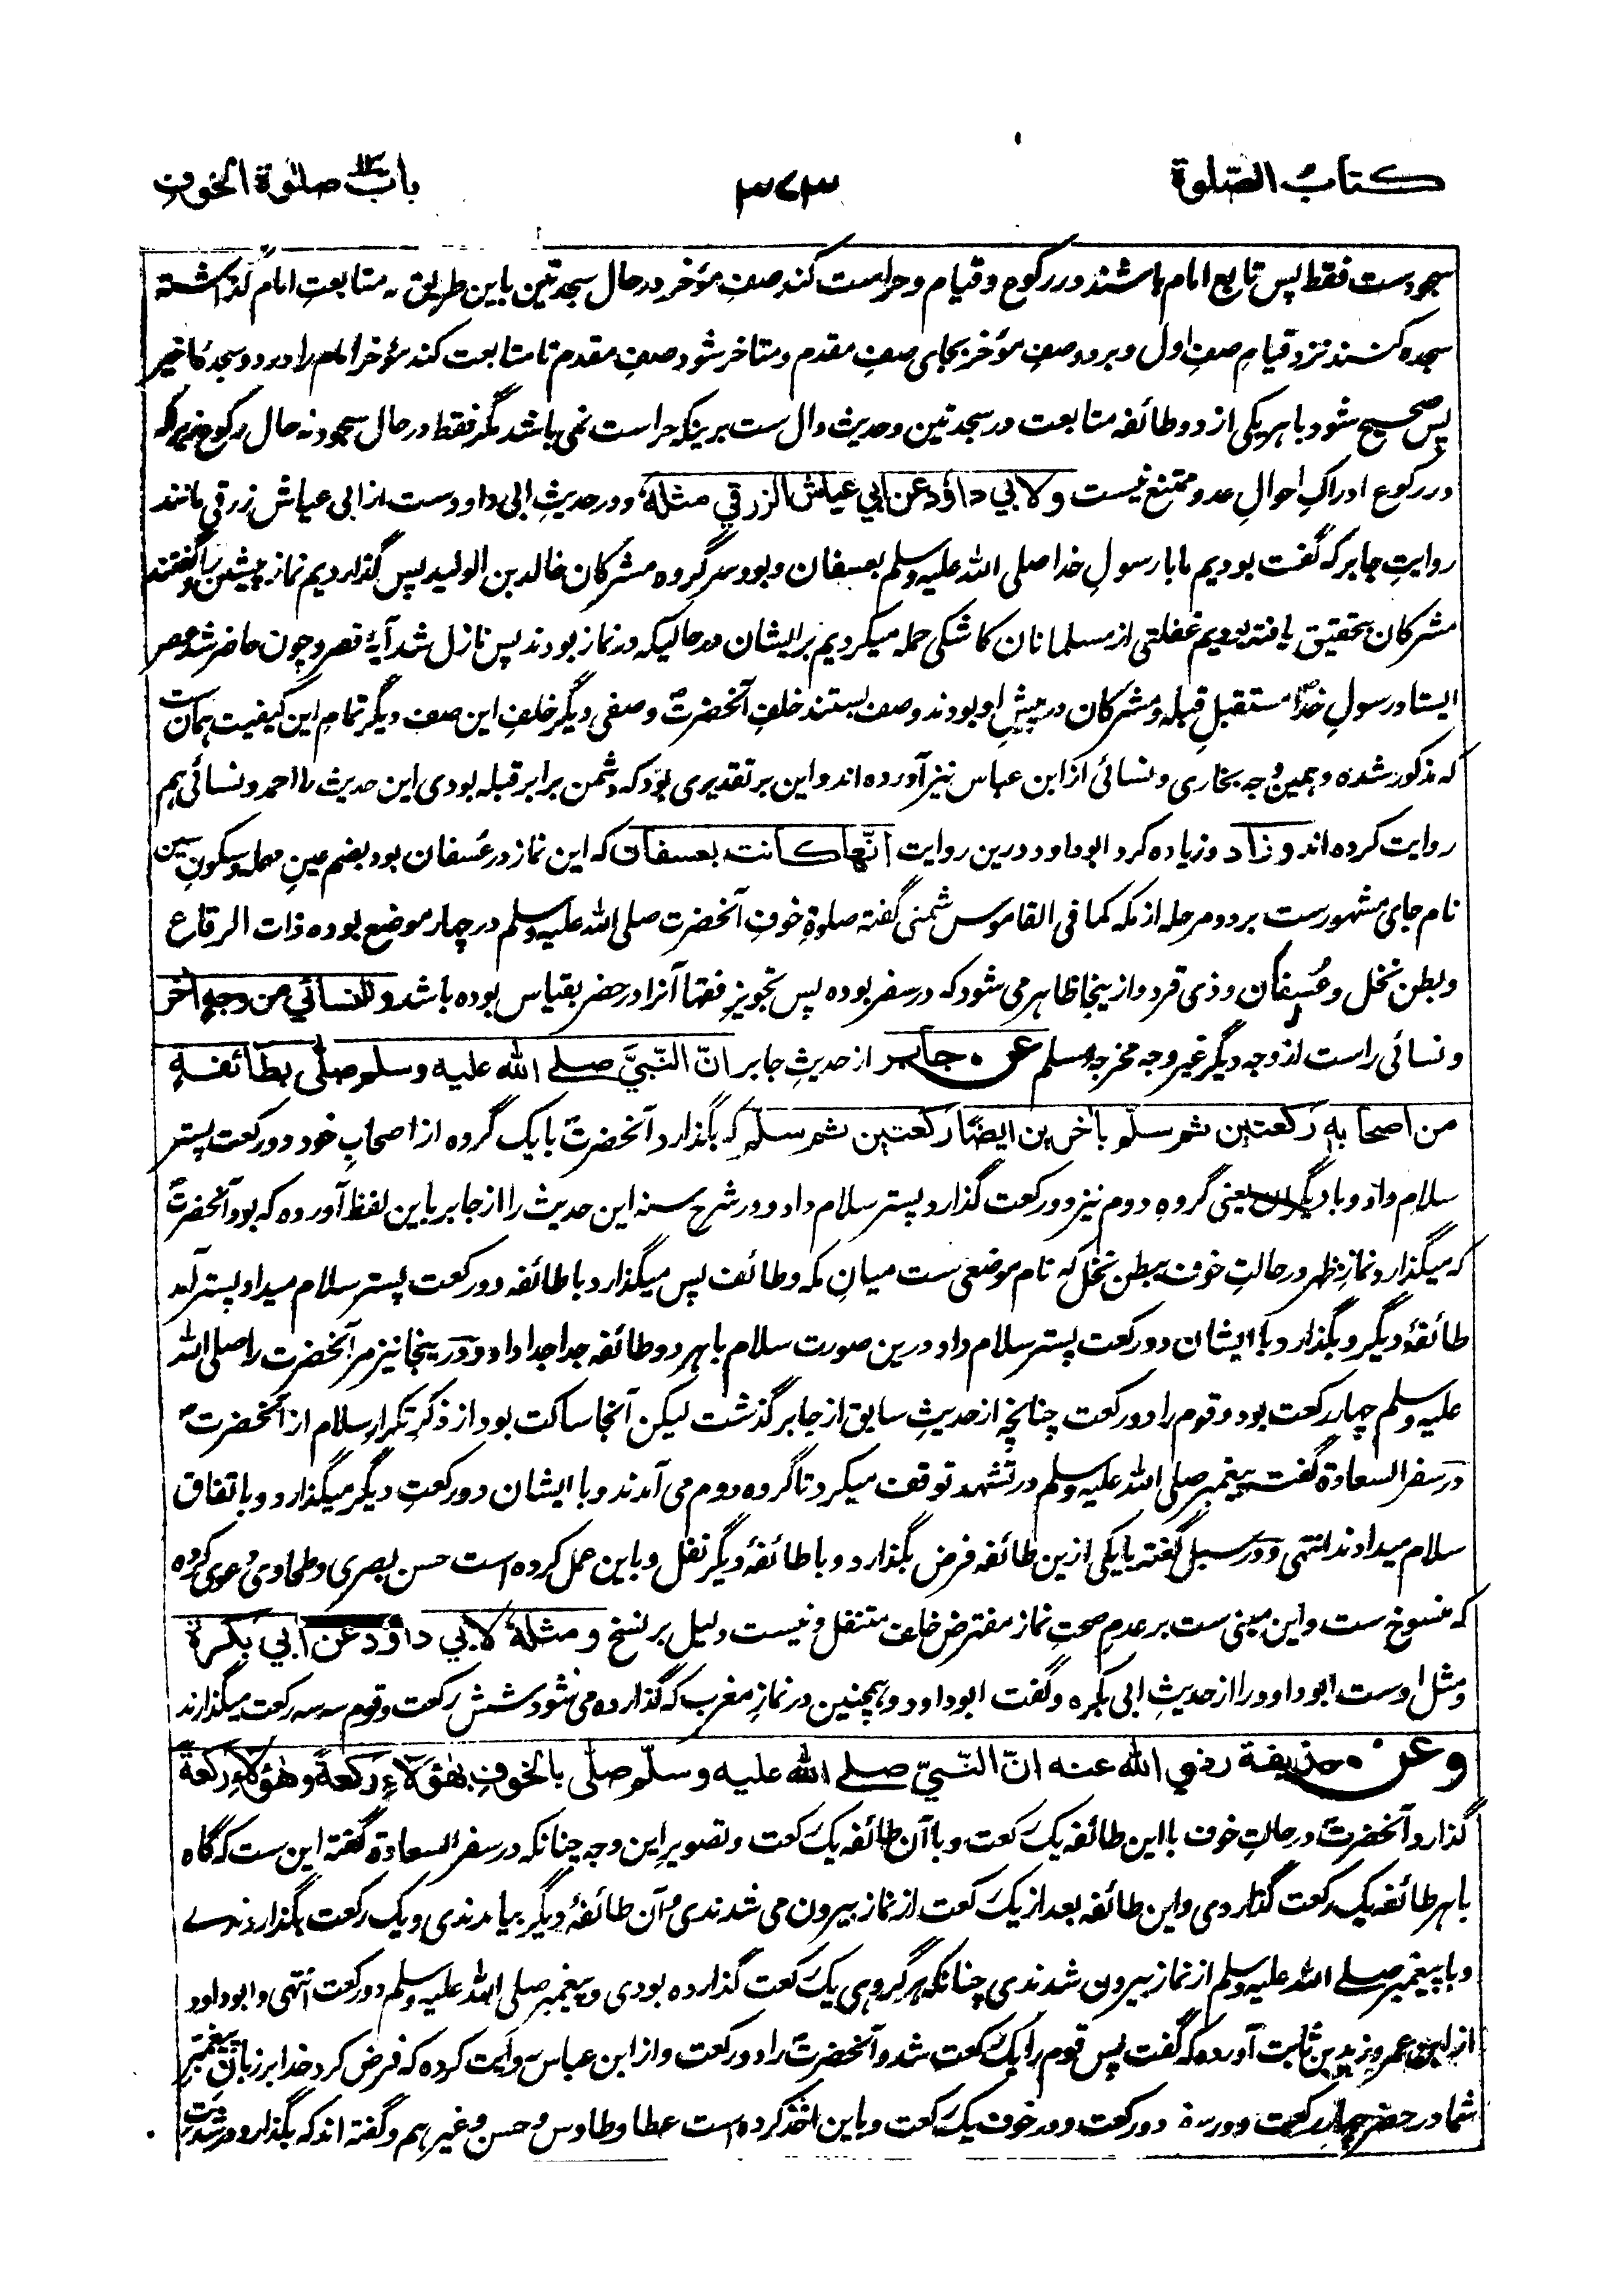 کتاب الصّلوة
۳۷۳
باب صلٰوة الخوف
سجودست فقط پس تابع امام باشند در رکوع و قیام و حراست کند صفِ مؤخر در حال سجدتین باین طریق به متابعتِ امام گذاشته
سجده کنند نزد قیامِ صفِ اول و برود صفِ مؤخر بجای صفِ مقدم و متاخر شود صفِ مقدم تا متابعت کند مؤخر امام را در دو سجدهٔ اخیر
پس صحیح شود با هر یکی از دو طائفه متابعت در سجدتین و حدیث دال ست برینکه حراست نمی باشد مگر فقط در حال سجود نه حال رکوع زیراکه
در رکوع ادراکِ احوالِ عدو ممتنع نیست ولابي داؤد عن ابي عياش الزرقي مثله و در حدیثِ ابی داود ست از ابی عیاش زرقی مانند
روایتِ جابر که گفت بودیم ما با رسولِ خدا صلی الله علیه وسلم بعسفان و بود سرگروه مشرکان خالد بن الولید پس گذاردیم نماز پیشین را گفتند
مشرکان بتحقیق یافته بودیم غفلتی از مسلمانان کاشکی حمله میکردیم بر ایشان در حالیکه در نماز بودند پس نازل شد آیهٔ قصر و چون حاضر شد عصر
ایستاد رسولِ خدا مستقبلِ قبله و مشرکان در پیشِ او بودند و صف بستند خلفِ آنحضرتؐ و صفی دیگر خلفِ این صف دیگر تمامِ این کیفیت همان ست
که مذکور شده و بهمین وجه بخاری و نسائی از ابن عباس نیز آورده اند و این بر تقدیری بود که دشمن برابر قبله بودی این حدیث را احمد و نسائی هم
روایت کرده اند وزاد و زیاده کرد ابو داود درین روایت انّها كانت بعسفان که این نماز در عسفان بود بضم عینِ مهمله و سکونِ سین
نام جای مشهورست بر دو مرحله از مکه کما فی القاموس شمنی گفته صلوةِ خوفِ آنحضرت صلی الله علیه وسلم در چهار موضع بوده ذات الرقاع
و بطن نخل و عُسفان و ذی قرد و ازینجا ظاهر می شود که در سفر بوده پس تجویزِ فقها آنرا در حضر بقیاس بوده باشد وللنسائي من وجهٍ اٰخر
و نسائی راست از وجه دیگر غیر وجه مخرجه مسلم عن جابر از حدیثِ جابر انّ النّبيَّ صلے الله عليه وسلم صلّى بطائفةٍ
من اصحابه رَكعتين ثم سلّم باٰخرين ايضًا رَكعتين ثم سلم که بگذارد آنحضرتؐ با یک گروه از اصحابِ خود دو رکعت پستر
سلام داد و با دیگران یعنی گروهِ دوم نیز دو رکعت گذارد پستر سلام داد و در شرح سنه این حدیث را از جابر باین لفظ آورده که بود آنحضرتؐ
که میگذارد نمازِ ظهر در حالتِ خوف ببطن نخل که نام موضعی ست میانِ مکه و طائف پس میگذارد با طائفه دو رکعت پستر سلام میداد پستر آمد
طائفهٔ دیگر و بگذارد با ایشان دو رکعت پستر سلام داد درین صورت سلام با هر دو طائفه جدا جدا داد و درینجا نیز مر آنحضرت را صلی الله
علیه وسلم چهار رکعت بود و قوم را دو رکعت چنانچه از حدیثِ سابق از جابر گذشت لیکن آنجا ساکت بود از ذکرِ تکرارِ سلام از آنحضرتؐ
در سفر السعادة گفت پیغمبر صلی الله علیه وسلم در تشهد توقف میکرد تا گروه دوم می آمدند و با ایشان دو رکعتِ دیگر میگذارد و باتفاق
سلام میدادند انتهی و در سبل گفته با یکی ازین طائفه فرض بگذارد و با طائفهٔ دیگر نفل و باین عمل کرده است حسن بصری و طحاوی دعوی کرده
که منسوخ ست و این مبنی ست بر عدم صحتِ نماز مفترض خلف متنفل و نیست دلیل بر نسخ ومثلهُ لابي داؤد عن ابي بكرة
و مثل اوست ابو داود را از حدیثِ ابی بکره و گفت ابو داود و همچنین در نمازِ مغرب که گذارده می شود شش رکعت و قوم سه سه رکعت میگذارند
وعن حذيفة رضي الله عنه انّ النّبيّ صلے الله عليه وسلّم صلّى بالخوفِ بهٰؤلاءِ رَكعةً وهٰؤلاءِ رَكعةً
گذارد آنحضرتؐ در حالتِ خوف با این طائفه یک رکعت و با آن طائفه یک رکعت و تصویرِ این وجه چنانکه در سفر السعادة گفته این ست که گاه
با هر طائفه یک رکعت گذاردی و این طائفه بعد از یک رکعت از نماز بیرون می شدندی و آن طائفهٔ دیگر بیامدندی و یک رکعت بگذاردندے
و با پیغمبر صلے الله علیه وسلم از نماز بیرون شدندی چنانکه هر گروهی یک رکعت گذارده بودی و پیغمبر صلی الله علیه وسلم دو رکعت انتهی و ابو داود
از ابن عمر و زید بن ثابت آورده که گفت پس قوم را یک رکعت شد و آنحضرتؐ را دو رکعت و از ابن عباس روایت کرده که فرض کرد خدا بر زبان پیغمبر
شما در حضر چهار رکعت و در سفر دو رکعت و در خوف یک رکعت و باین اخذ کرده است عطا و طاوس و حسن و غیرهم و گفته اند که بگذارد در شدت